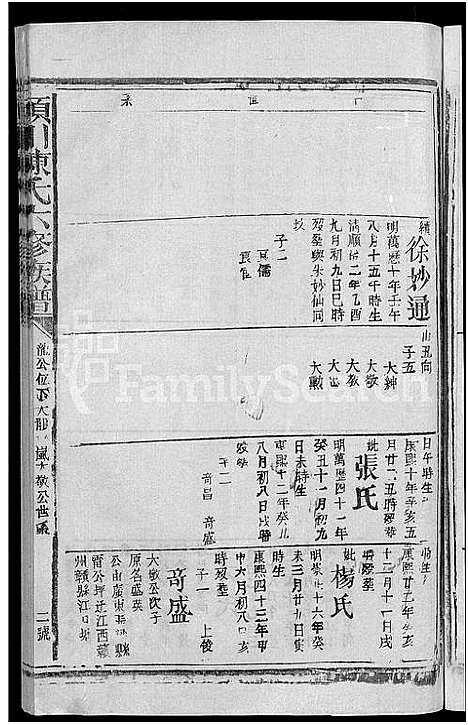 續
徐妙通
明萬歷十年壬午
八月十五午時生
清順治二年乙酉
九月初九日巳時
歿葬與朱妙仙同
坟
子二
艮山丑向
子五
大紳
大敬
大志
大教
大勲
日午時生
康熙十年辛亥五
月廿二丑時歿葬
妣
張氏
明萬歷四十一年
癸丑十一月初九
日未時生
康熙十二年癸丑
八月初八日戌時
歿葬
子二
奇昌 奇盛
時生
康熙廿三年亥
十二月十一日戌
時歿葬
妣
楊氏
明崇禎十六年癸
未三月廿九日寅
時生
康熙四十三年甲
申六月初八日亥
時歿葬
子一
上俊
奇盛
大敬公次子
原名盛英
公由廣東
雷公坪迁江西贛
州贛縣江口塘
潁川陳氏六修族譜
大敬公世系
二號
FamilySearch